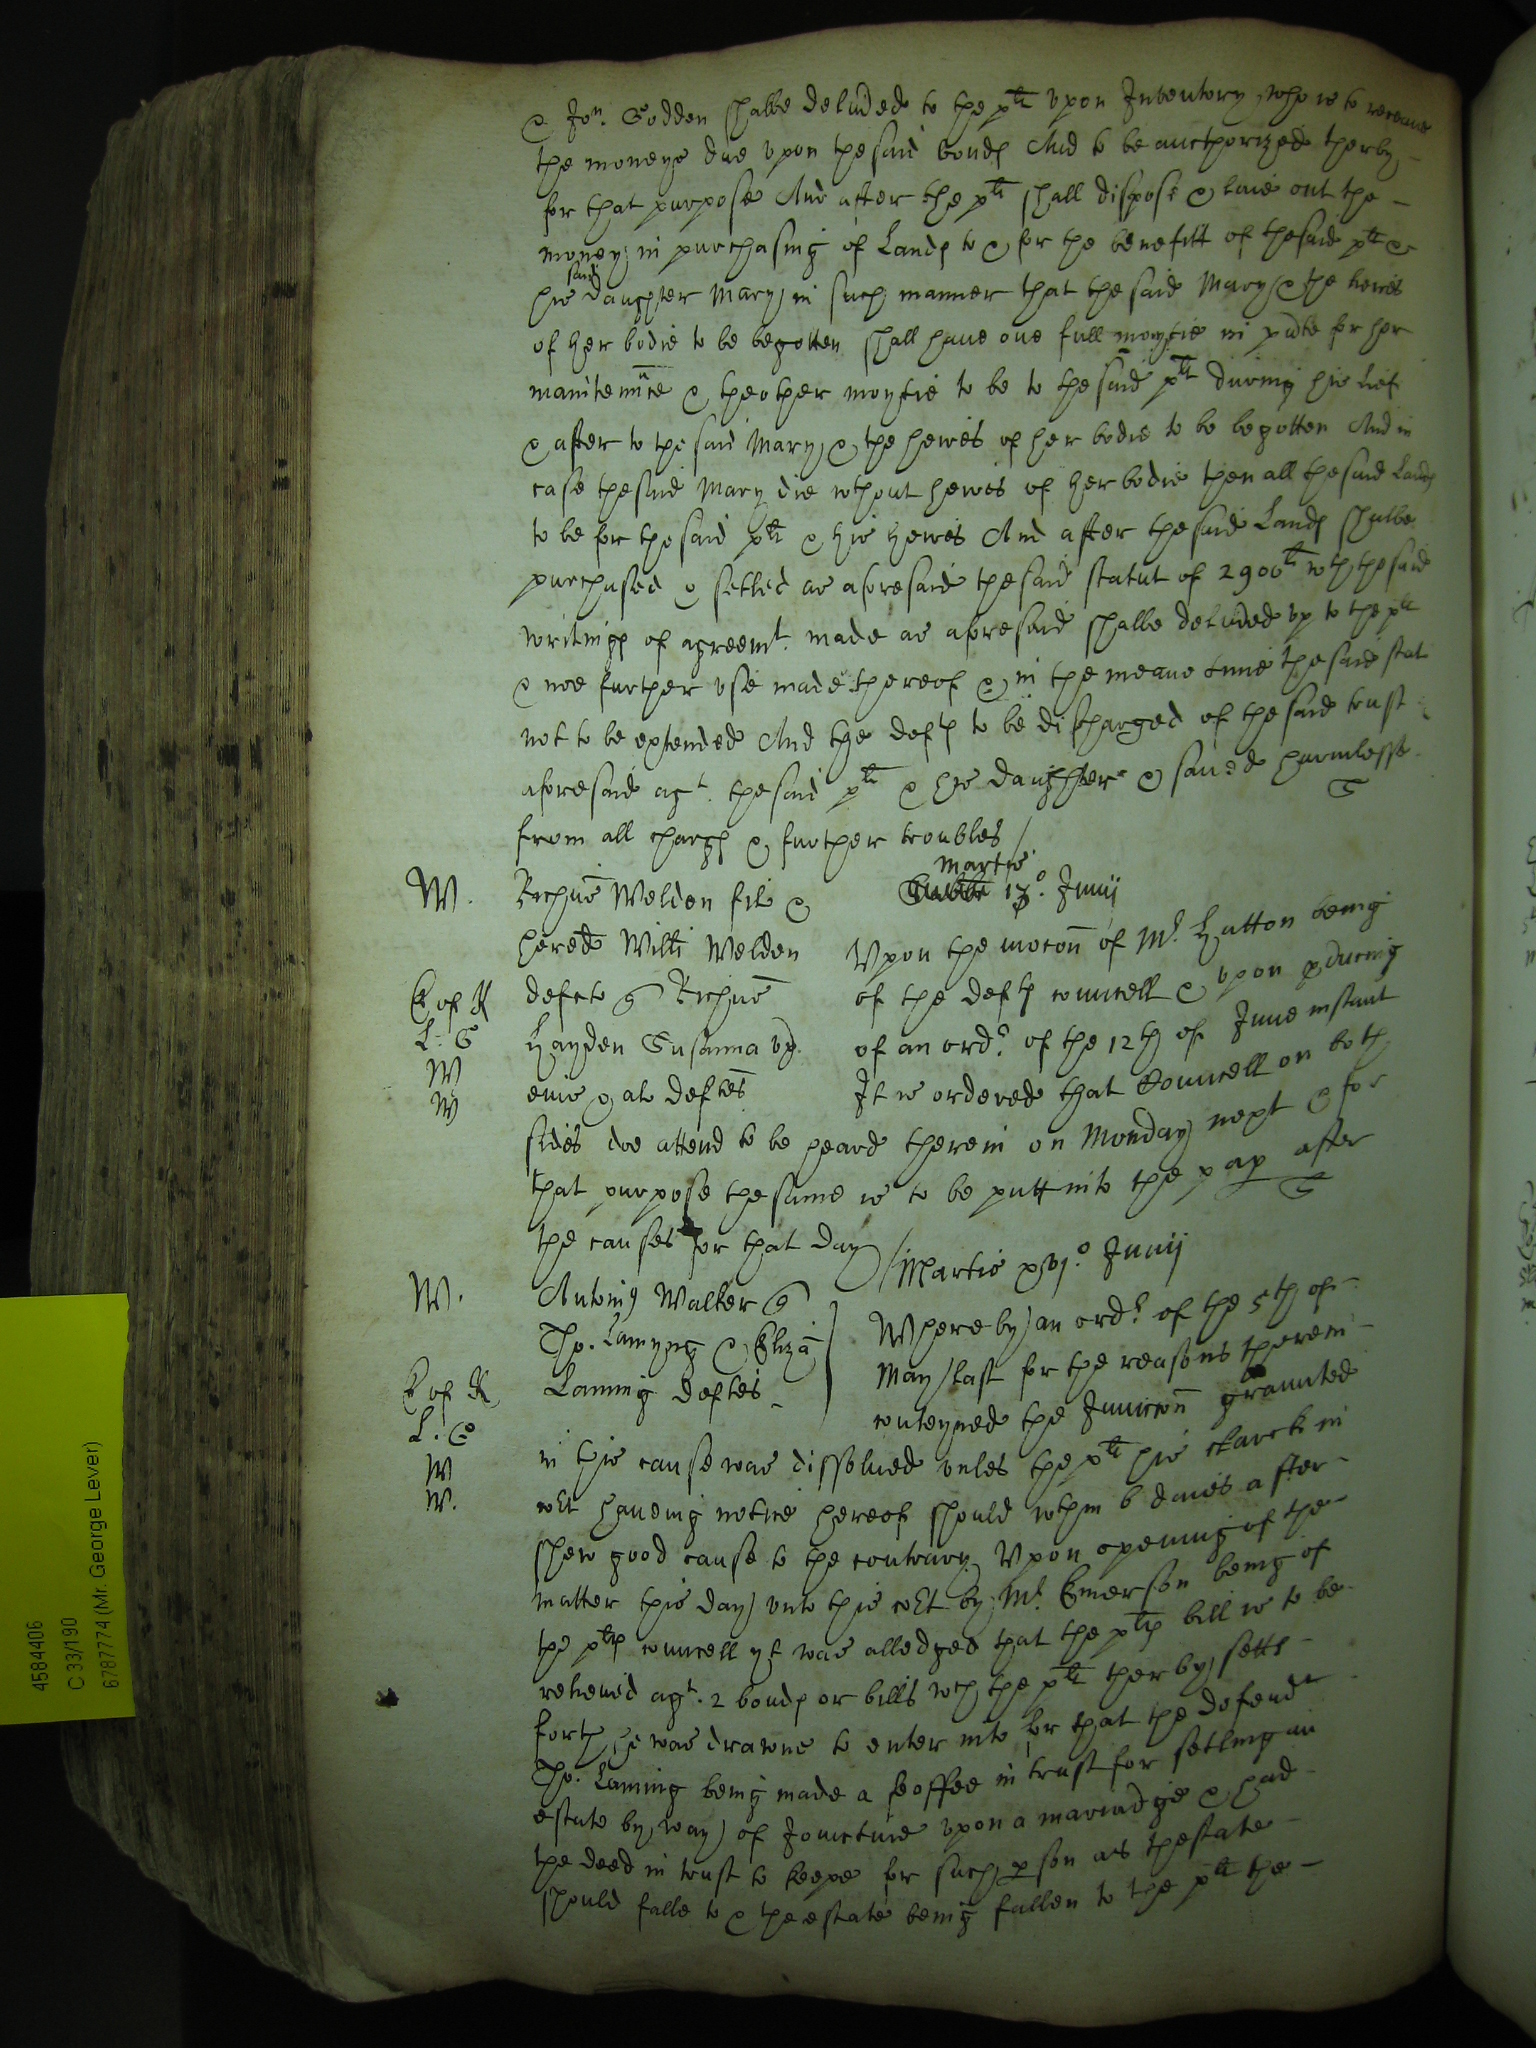 & Jon. Godden shalbe deliv̄ed to the plt upon Inventory who is to receave
the moneys due upon the said bonds And to be aucthorized therby
for that purpose And after the plt shall dispose & laie out the
money in purchasing of Lands to & for the benefitt of the said plt &
his said daughter Mary in such manner that the said Mary & the heires
of her bodie to be begotten shall have one full moytie in for her
maintennce & theother moytie to be to the said plt during his lief
& after to the said Mary & the heires of her bodie to be begotten And in
case the said Mary die without heires of her bodie then all the said Lands
to be for the said plt & his heires And after the said Lands shalbe
purchased & setled as aforesaid the said statut of 2900li wth the said
writings of agreemt. made as aforesaid shalbe deliv̄ed up to the plt
& noe further use made thereof & in the meane time the said stat
not to be extended And the defts to be discharged of the said trust
aforesaid agt. the said plt & his daughter & saved harmlesse
from all chargs & further troubles
W. Richus Weldon fil & Martis 13o. Junij
hered Willi Weldon Upon the mocōn of Mr. Hatton being
defcto Richus of the defts councell & upon pducing
Hayden Susanna ux of an ordr. of the 12th of June instant
eius & al deftes It is ordered that Councell on both
sides doe attend to be heard therein on Monday next & for
that purpose the same is to be putt into the pap after
the causes for that day Martis xvjo. Junij
W. Antoni9 Walker
Tho. Lamyng & Eliza Whereby an ordr. of the 5th of
Laming deftes May last for the reasons therein
conteyned the Iniuncōn graunted
in this cause was dissolved unles the plt his clarck in
cort haveing notice hereof should wthin 6 daies after
shew good cause to the contrary Upon opening of the
matter this day unto this cort by Mr. Emerson being of
the plts councell yt was alledged that the plts bill is to be
releived agt. 2 bonds or bills wch the plt therby setts
forth he was drawne to enter into for that the defendt
Tho. Laming being made a feoffee in trust for setling an
estate by way of Joincture upon a mariadge & had
the deed in trust to keepe for such pson as thestate
should falle to & the estate being fallen to the plt the
E of R
L: C
W
W
E of R
L. C
W
W.
4584406
C 33/190
6787774 (Mr. George Lever)